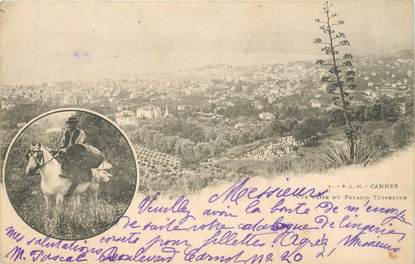 P.L.M. - CANNES
DU PARADIS TERRESTRE
Messieurs
Veuillez avoir la bonté de m'envoyer
de suite votre catalogue de lingerie
corsets pour fillettes Agréez Messieurs
mes salutations
M. Pascal Boulevard Carnot No 20